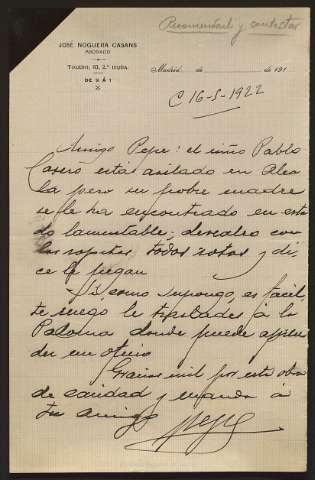 Recomendado y contestar
JOSÉ NOGUERA CASANS
ABOGADO
TOLEDO, 10, 2.º IZQDA.
DE 9 Á 1
Madrid de de 191
C 16-5-1922
Amigo Pepe: el niño Pablo
Casero está asilado en Alca
la pero su pobre madre
se le ha encontrado en esta
do lamentable; descalzo con
las ropitas todas rotas y di
ce le pegan
Si, como supongo, es facil,
te ruego le trasldes á la
Paloma donde puede apren
der un oficio
Gracias mil por esta obra
de caridad y manda á
tu amigo
Pepe